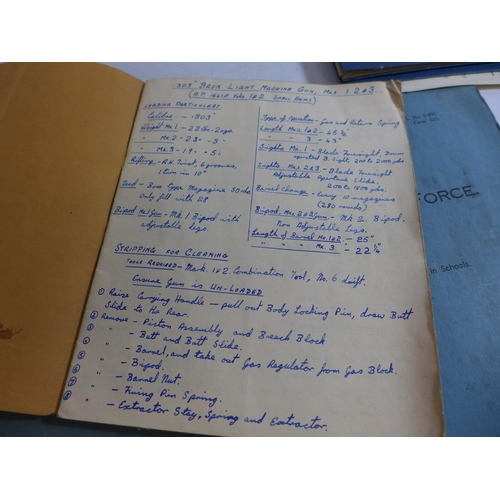 .303" Bren Light Machine Gun, Mks 1.2&3.
(A.P. 1641F Vols 1&2 Small Arms)
Leading Particulars
Calibre - .303"
Weight Mk.1 - 22 lbs. 2 ozs.
" Mk.2 - 23 .. 3 "
" Mk.3 - 19 .. 5 "
Rifling - R.H. Twist, 6 grooves,
1 turn in 10"
Feed - Box Type Magazine 30 rds
only fill with 28
Bipod Mk1 Gun - Mk.1 Bipod with
adjustable legs.
Type of Operation - Gas and Return Spring
Length Mks. 1&2 - 45 ½"
" Mk. 3 - 43"
Sights Mk. 1 - Blade Foresight, Drum
operated B. Sight, 200 to 2000 yds.
Sights Mks. 2&3 - Blade Foresight
Adjustable Aperture Slide
200 to 1800 yds.
Barrel Change - Every 10 magazines
(280 rounds)
Bipod, Mks. 2&3 Gun - Mk 2. Bipod.
Non Adjustable Legs.
Length of Barrel Mk. 1&2 - 25"
" " " Mk. 3 - 22
Stripping for Cleaning
Tools Required - Mark. 1&2. Combination Tool, No. 6 drift.
Ensure Gun is Un-loaded
① Raise Carrying Handle - pull out Body Locking Pin, draw Butt
Slide to the Rear.
② Remove - Piston Assembly and Breech Block
③ " - Butt and Butt Slide.
④ " - Barrel, and take out Gas Regulator from Gas Block.
⑤ " - Bipod.
⑥ " - Barrel Nut.
⑦ " - Firing Pin Spring.
⑧ " - Extractor Stay, Spring and Extractor.
FORCE
in Schools.